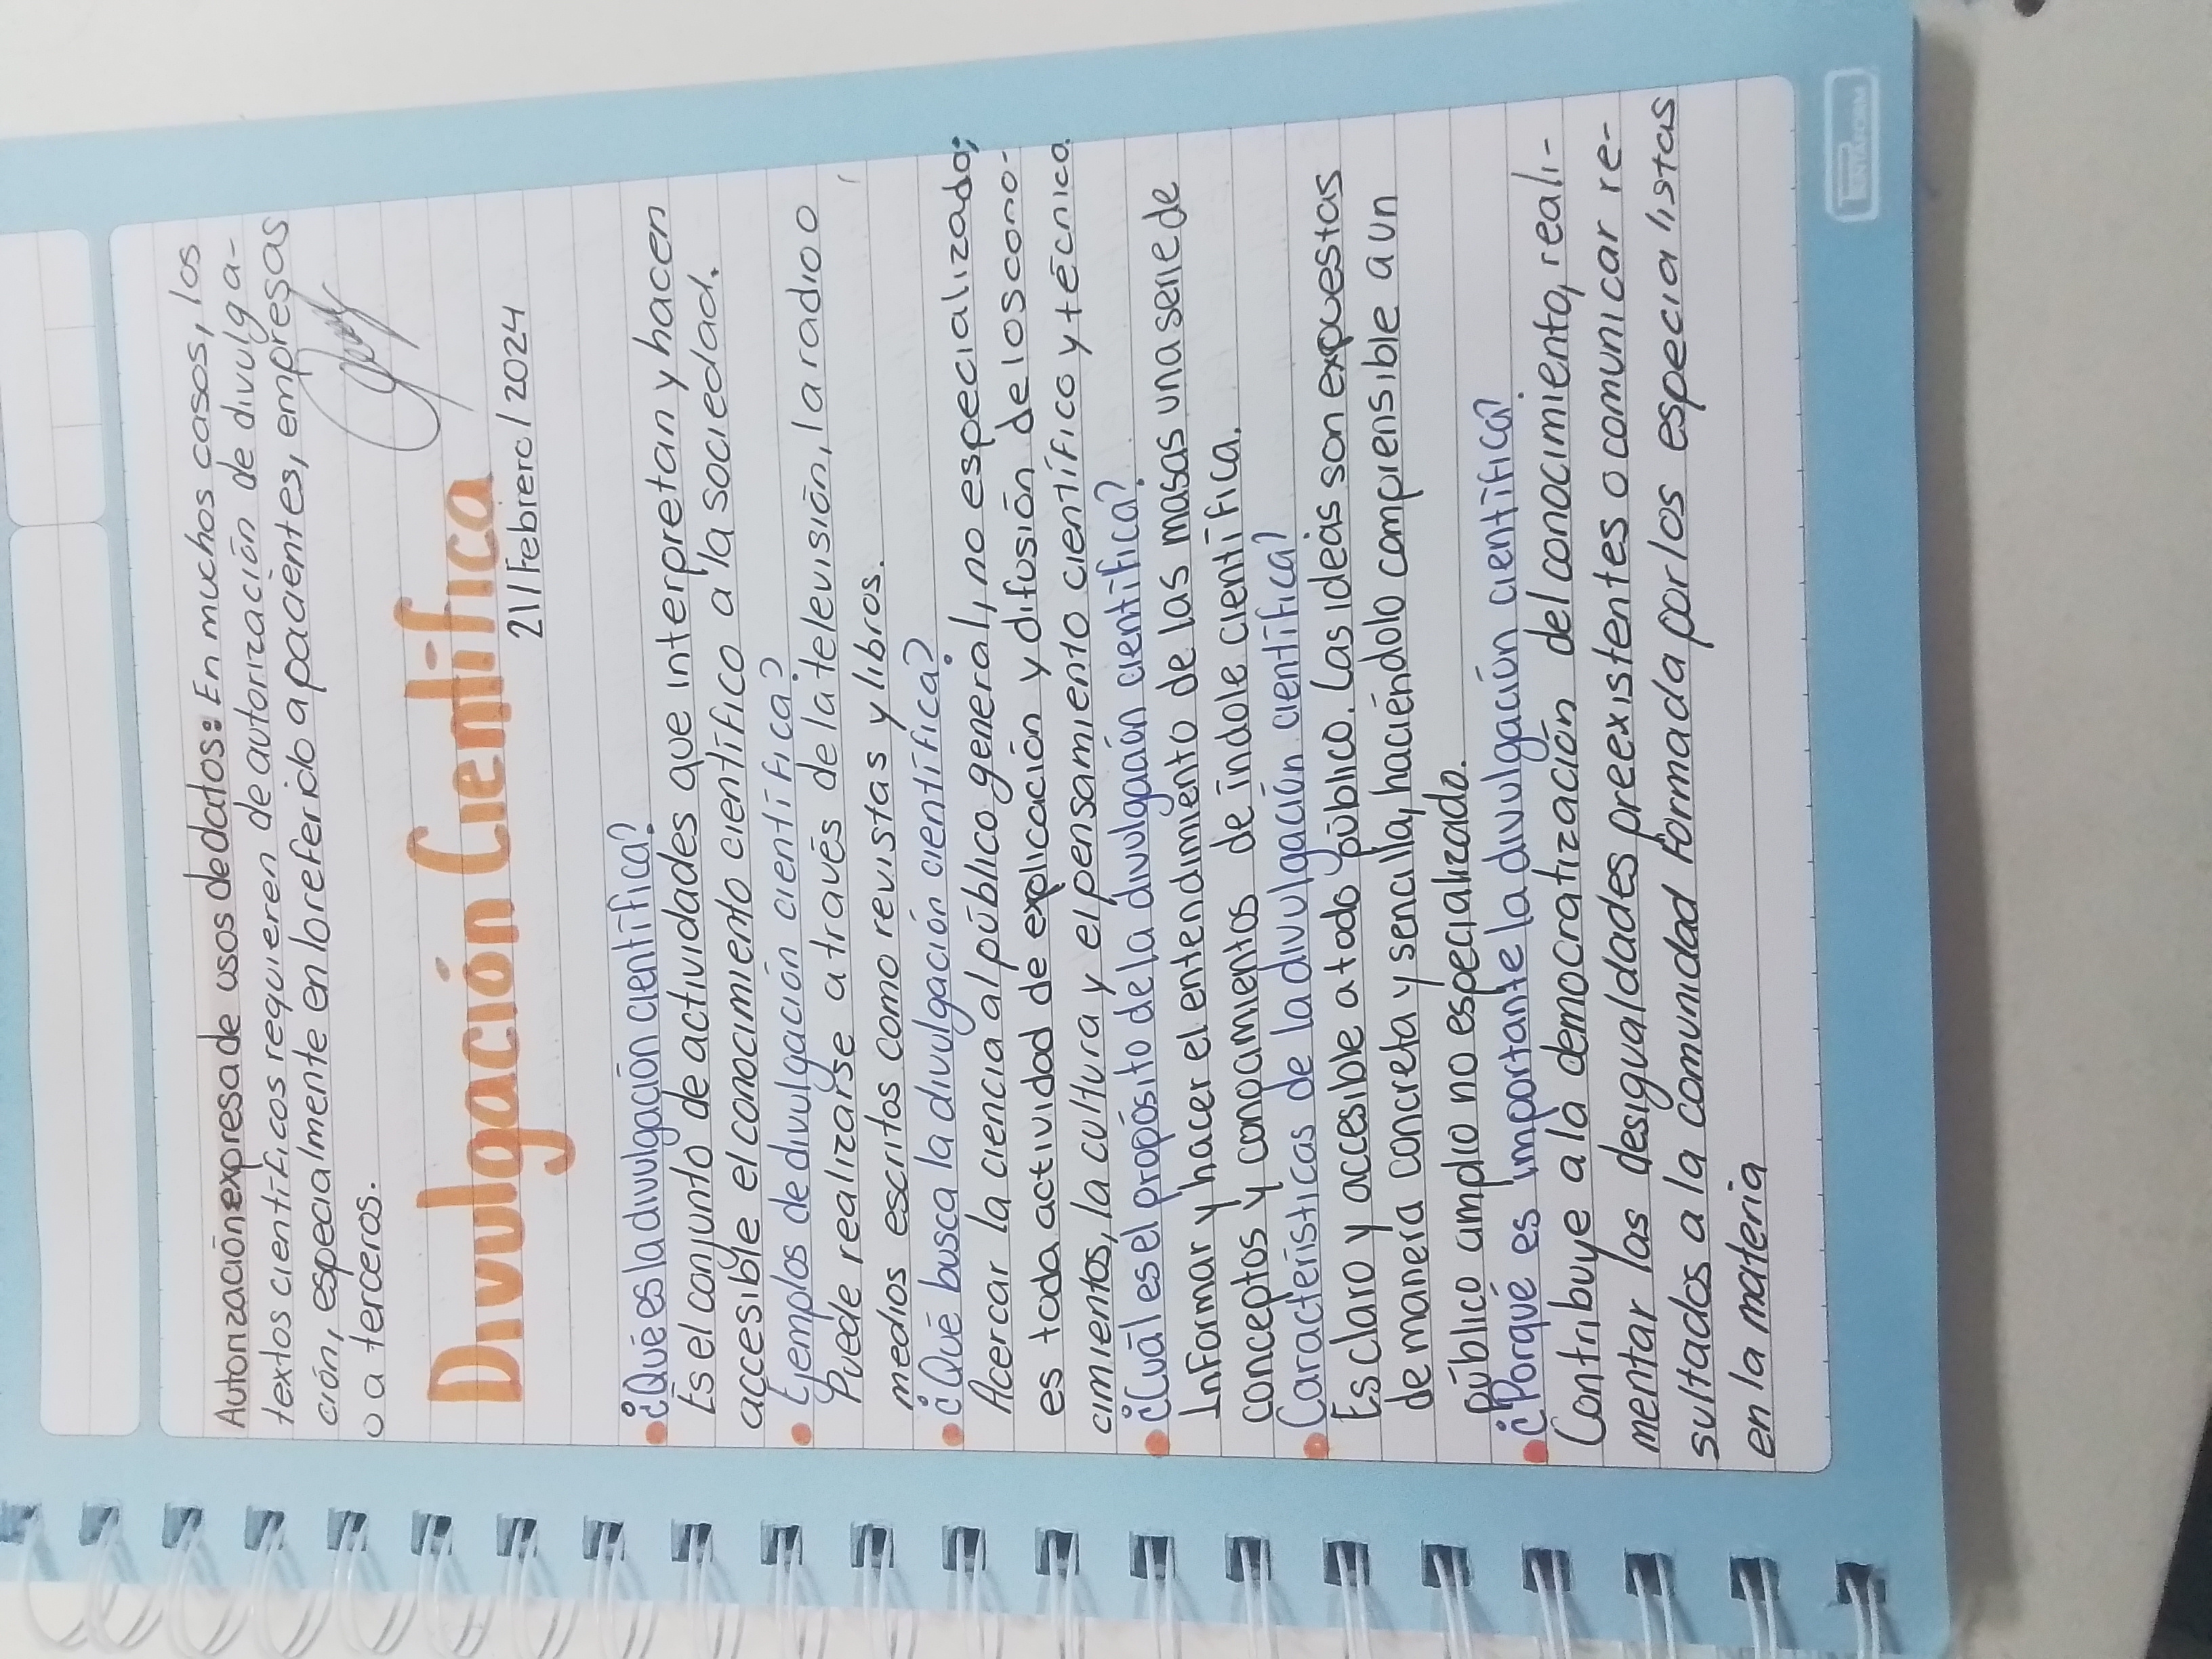 Autorización expresa de usos de datos: En muchos casos, los
textos científicos requieren de autorización de divulga-
ción, especialmente en lo referido a pacientes, empresas
o a terceros.
Divulgación Científica
21/Febrero/2024
• ¿Qué es la divulgación científica?
Es el conjunto de actividades que interpretan y hacen
accesible el conocimiento científico a la sociedad.
• Ejemplos de divulgación científica?
Puede realizarse a través de la televisión, la radio o
medios escritos como revistas y libros.
• ¿Qué busca la divulgación científica?
Acercar la ciencia al público general, no especializado;
es toda actividad de explicación y difusión de los cono-
cimientos, la cultura y el pensamiento científico y técnico.
• ¿Cuál es el propósito de la divulgación científica?
Informar y hacer el entendimiento de las masas una serie de
conceptos y conocimientos de índole científica.
• Características de la divulgación científica?
Es claro y accesible a todo público. Las ideas son expuestas
de manera concreta y sencilla, haciéndolo comprensible a un
público amplio no especializado.
• ¿Porqué es importante la divulgación científica?
Contribuye a la democratización del conocimiento, reali-
mentar las desigualdades preexistentes o comunicar re-
sultados a la comunidad formada por los especialistas
en la materia